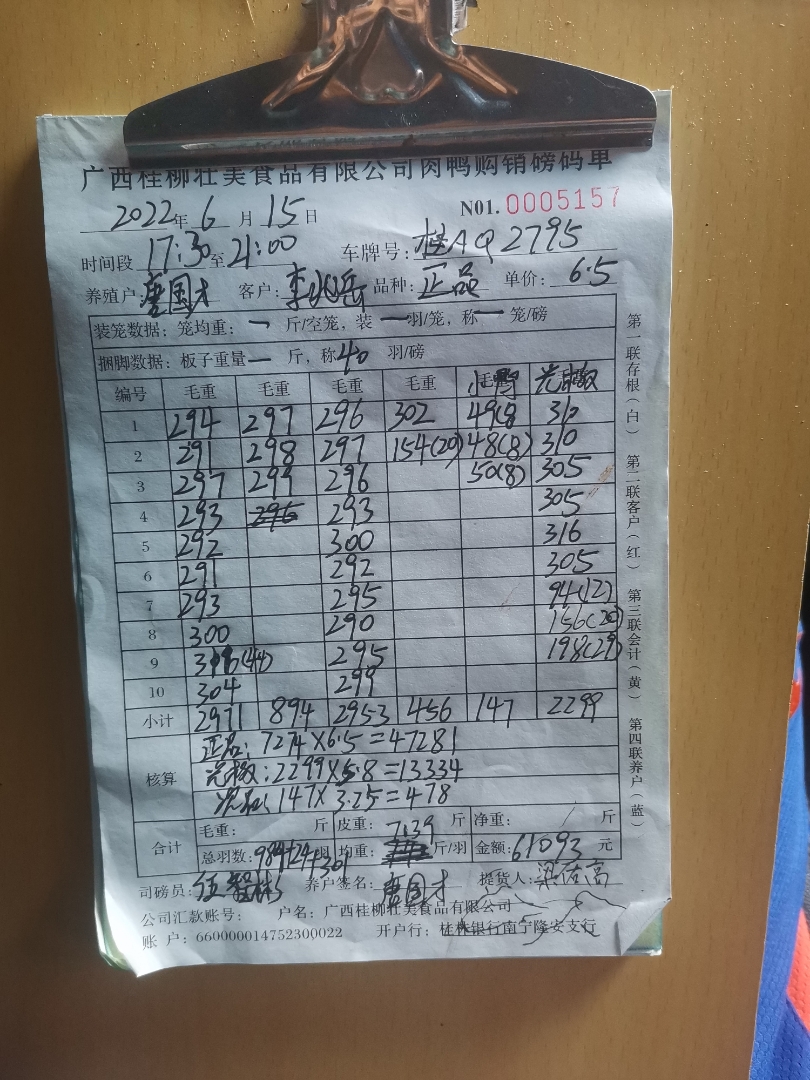 广西桂柳壮美食品有限公司肉鸭购销磅码单
2022年 6 月 15 日 N01. 0005157
时间段 17:30 至 21:00 车牌号: 桂AQ2795
养殖户 唐国才 客户: 李兆岳 品种: 正品 单价: 6.5
装笼数据: 笼均重: 一 斤/空笼, 装 一 羽/笼, 称 一 笼/磅
捆脚数据: 板子重量 一 斤, 称 40 羽/磅
编号 毛重 毛重 毛重 毛重 小鸭
1 294 297 296 302 49(8 310
2 291 298 297 154(20) 48(8) 310
3 297 299 296 50(8) 305
4 293 296 293 305
5 292 300 316
6 291 292 305
7 293 295 94(12)
8 300 290 156(20)
9 (44) 295 198(29)
10 304 299
小计 2971 894 2953 456 147 2299
核算
正品: 7274×6.5=47281
2299×5.8=13334
147×3.25=478
合计 毛重: 斤 皮重: 斤 净重: 斤
总羽数: 984+24+301 羽 均重: 7.39 斤/羽 金额: 61093 元
司磅员: 养户签名: 唐国才 提货人:
公司汇款账号: 户名: 广西桂柳壮美食品有限公司
账 户: 660000014752300022 开户行: 桂林银行南宁隆安支行
第一联存根(白) 第二联客户(红) 第三联会计(黄) 第四联养户(蓝)